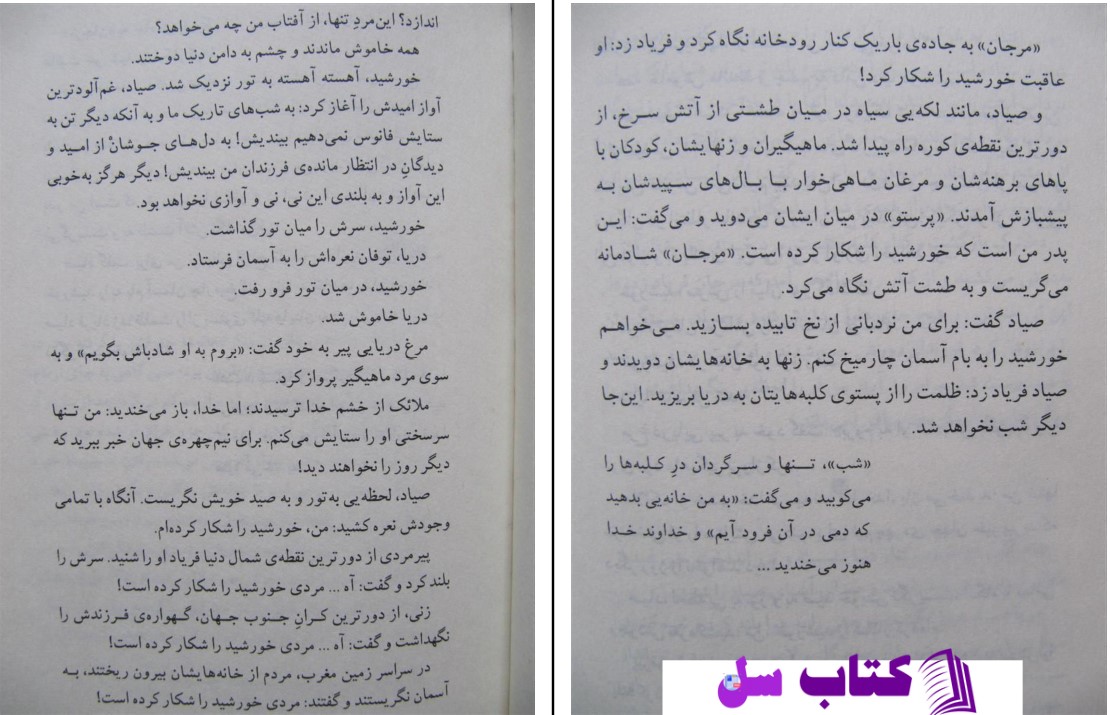 اندازد؟ این‌مردِ تنها، از آفتاب من چه می‌خواهد؟
همه خاموش ماندند و چشم به دامن دنیا دوختند.
خورشید، آهسته آهسته به تور نزدیک شد. صیاد، غم‌آلودترین
آواز امیدش را آغاز کرد: به شب‌های تاریک ما و به آنکه دیگر تن به
ستایش فانوس نمی‌دهیم بیندیش! به دل‌های جوشانْ از امید و
دیدگانِ در انتظار مانده‌ی فرزندان من بیندیش! دیگر هرگز به‌خوبی
این آواز و به بلندی این نی، نی و آوازی نخواهد بود.
خورشید، سرش را میان تور گذاشت.
دریا، توفان نعره‌اش را به آسمان فرستاد.
خورشید، در میان تور فرو رفت.
دریا خاموش شد.
مرغ دریایی پیر به خود گفت: «بروم به او شادباش بگویم» و به
سوی مرد ماهیگیر پرواز کرد.
ملائک از خشم خدا ترسیدند؛ اما خدا، باز می‌خندید: من تنها
سرسختی او را ستایش می‌کنم. برای نیم‌چهره‌ی جهان خبر ببرید که
دیگر روز را نخواهند دید!
صیاد، لحظه‌یی به‌تور و به صید خویش نگریست. آنگاه با تمامی
وجودش نعره کشید: من، خورشید را شکار کرده‌ام.
پیرمردی از دورترین نقطه‌ی شمال دنیا فریاد او را شنید. سرش را
بلند کرد و گفت: آه ... مردی خورشید را شکار کرده است!
زنی، از دورترین کرانِ جنوب جهان، گهواره‌ی فرزندش را
نگهداشت و گفت: آه ... مردی خورشید را شکار کرده است!
در سراسر زمین مغرب، مردم از خانه‌هایشان بیرون ریختند، به
آسمان نگریستند و گفتند: مردی خورشید را شکار کرده است!
«مرجان» به جاده‌ی باریک کنار رودخانه نگاه کرد و فریاد زد: او
عاقبت خورشید را شکار کرد!
و صیاد، مانند لکه‌یی سیاه در میان طشتی از آتش سرخ، از
دورترین نقطه‌ی کوره راه پیدا شد. ماهیگیران و زنهایشان، کودکان با
پاهای برهنه‌شان و مرغان ماهی‌خوار با بال‌های سپیدشان به
پیشبازش آمدند. «پرستو» در میان ایشان می‌دوید و می‌گفت: این
پدر من است که خورشید را شکار کرده است. «مرجان» شادمانه
می‌گریست و به طشت آتش نگاه می‌کرد.
صیاد گفت: برای من نردبانی از نخ تابیده بسازید. می‌خواهم
خورشید را به بام آسمان چارمیخ کنم. زنها به خانه‌هایشان دویدند و
صیاد فریاد زد: ظلمت را از پستوی کلبه‌هایتان به دریا بریزید. این‌جا
دیگر شب نخواهد شد.
«شب»، تنها و سرگردان درِ کلبه‌ها را
می‌کوبید و می‌گفت: «به من خانه‌یی بدهید
که دمی در آن فرود آیم» و خداوند خدا
هنوز می‌خندید ...
کتاب سل